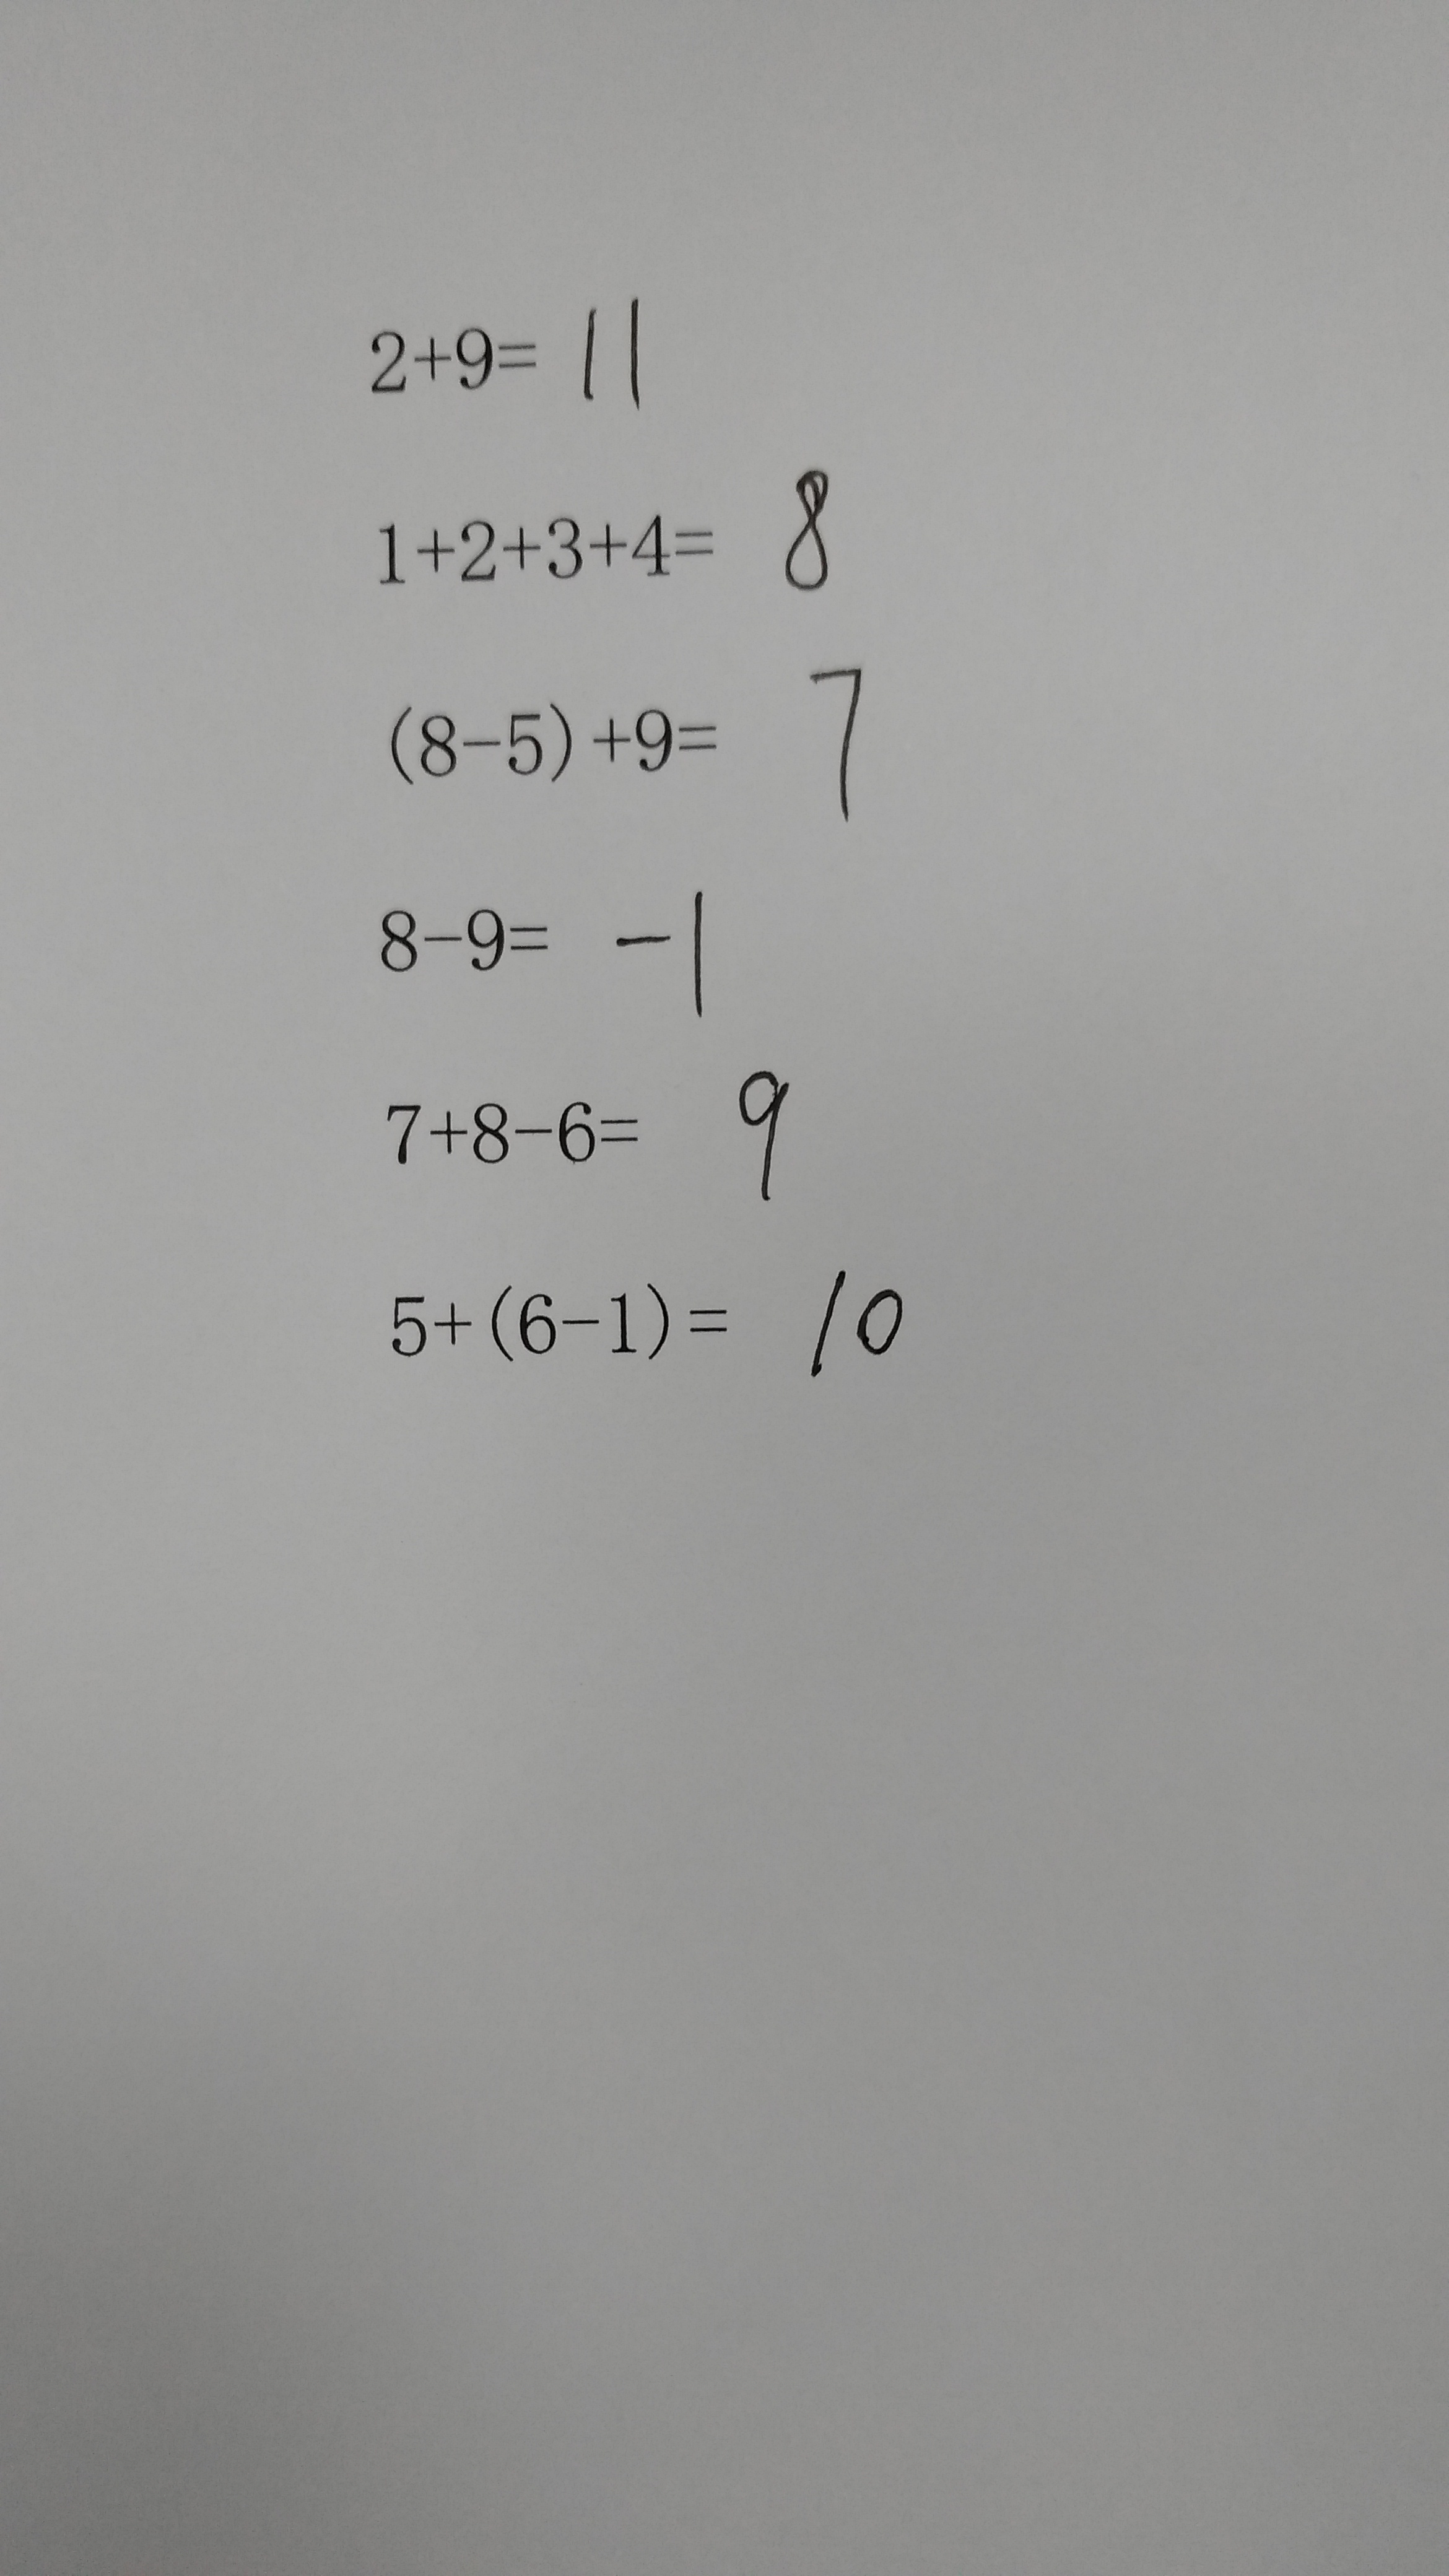 2+9= 11
1+2+3+4= 8
(8-5)+9= 7
8-9= -1
7+8-6= 9
5+(6-1)= 10